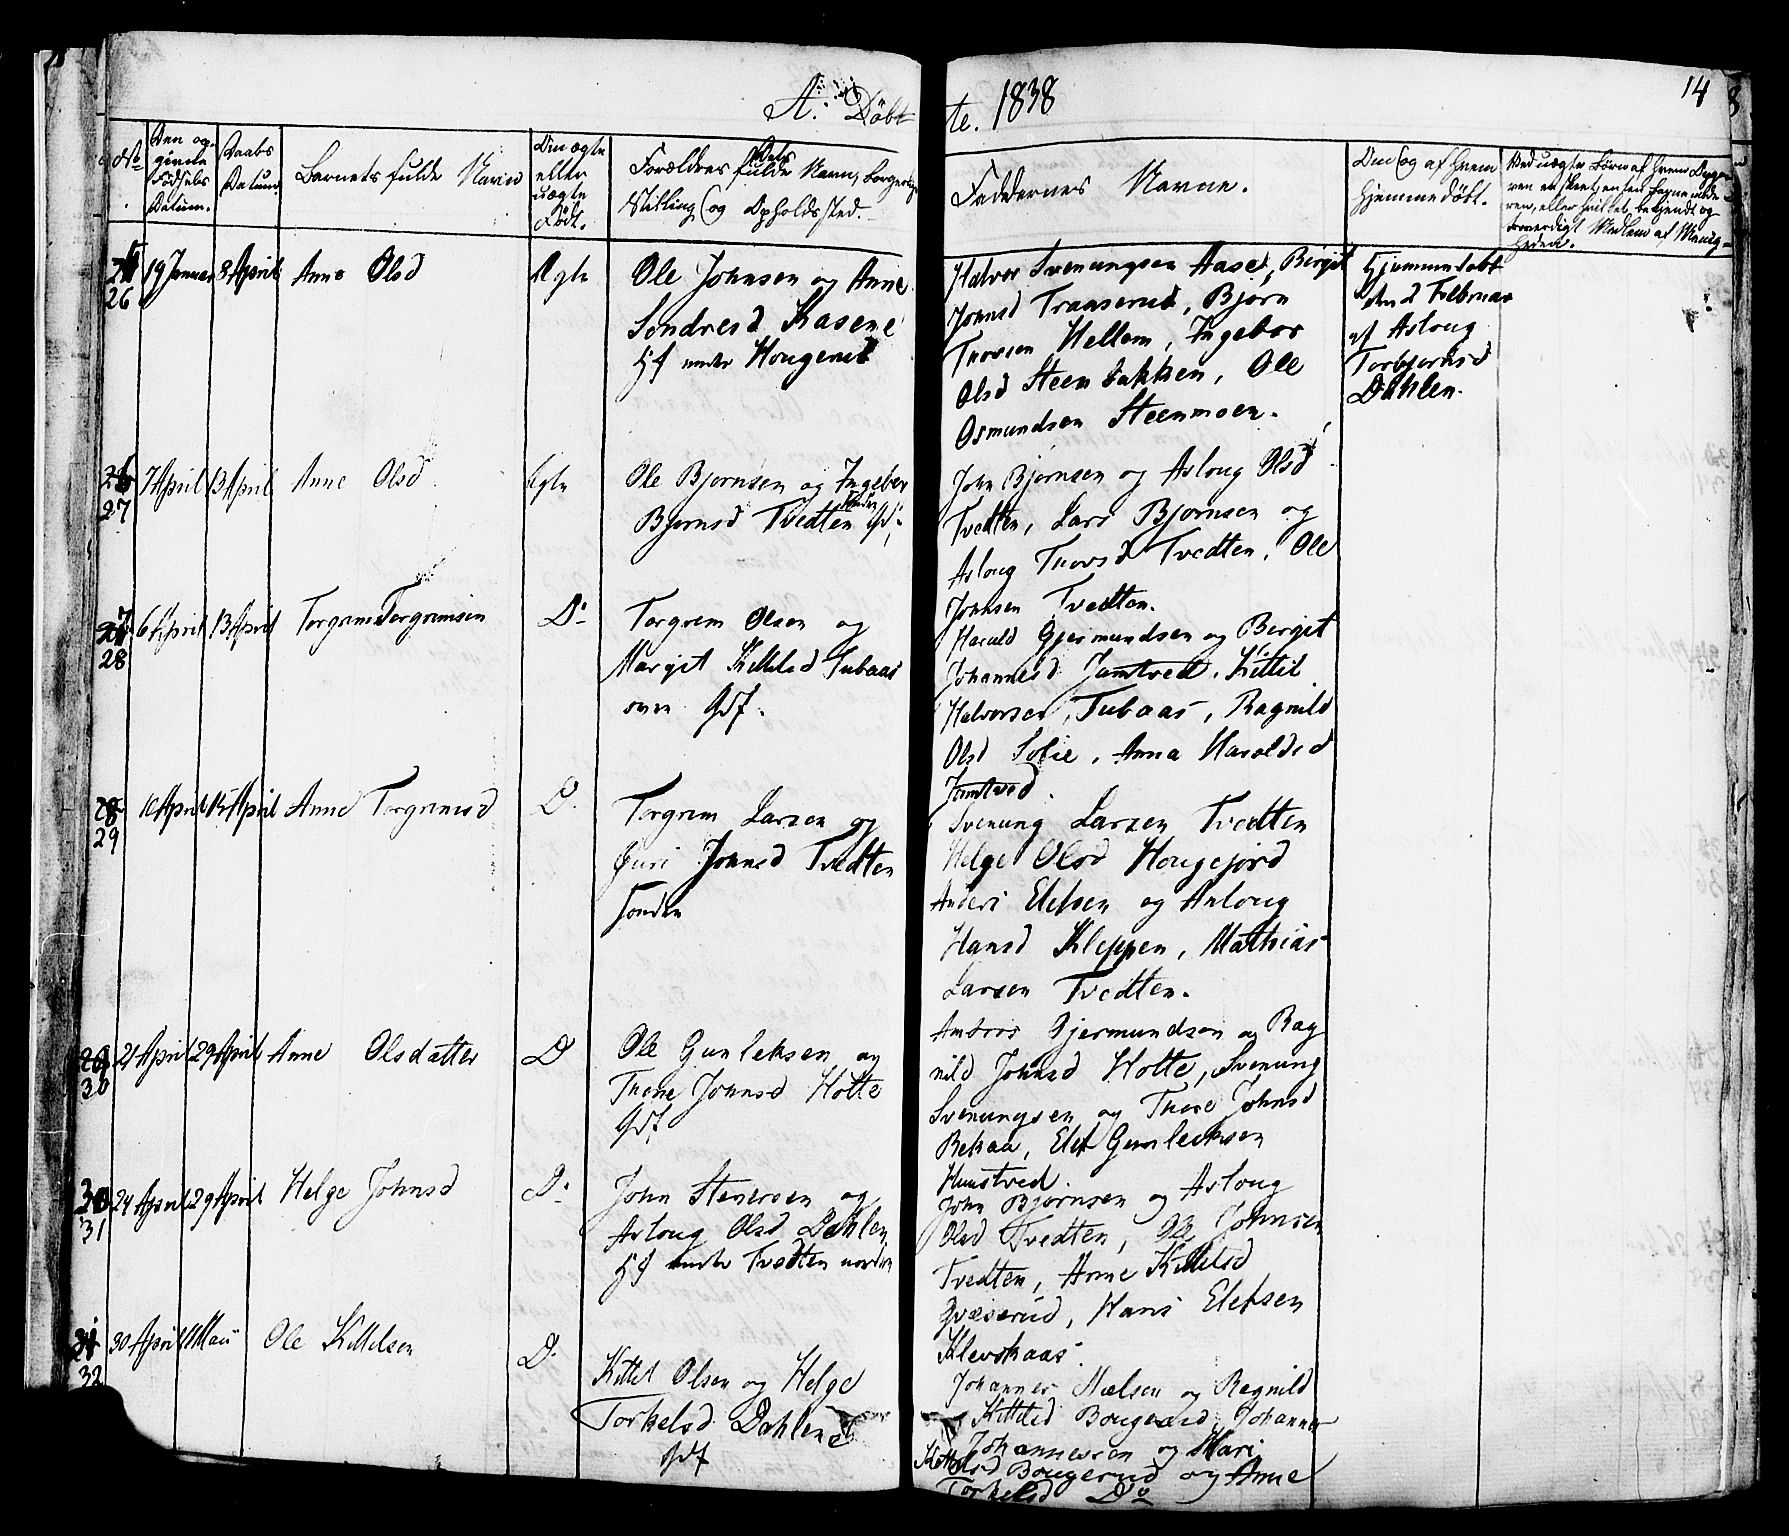 A. Döbte. 1838
14
No.
Den opgivne Födsels Datum.
Daabs Datum
Barnets fulde Navn
Om ægte eller uægte Födt.
Forældres fulde Navn, Borgerlige
Stilling (og Opholds sted.
Faddernes Navne.
Om (og af hvem
Hjemmedöbt.
26
19 Januar
8 April
Anne Olsd
Ægte
Ole Johnsen og Anne
Sondresd Kasene
Hf under Hougerud
Halvor Svenungsen Aase, Birgit
Johnsd Transerud, Bjørn
Thorsen Hellem, Ingebor
Olsd Steenbakken, Ole
Osmundsen Steenmoen.
Hjemmedøbt
den 2 Februar
af Asloug
Torbjørnsd
Dahlen.
27
7 April
13 April
Anne Olsd
Ægte
Ole Bjornsen og Ingebor
Bjornsd Tvedten Sondre Gdf.
John Bjornsen og Asloug Olsd
Tvedten, Lars Bjornsen og
Asloug Thorsd Tvedten, Ole
Johnsen Tvedten.
28
6 April
13 April
Torgrim Torgrimsen
Do
Torgrem Olsen og
Margit Kittelsd Tubaas
Gdf.
Harald Gjermundsen og Bergit
Johannesd Jamtved. Kittil
Halvorsen, Tubaas, Ragnild
Olsd Solie, Anna Haroldsd
Jamtved.
29
10 April
15 April
Anne Torgrimsd
D.
Torgrem Larsen og
Guri Johnsd Tvedten
Sondre
Svenung Larsen Tvedten
Helge Olsd Hougejord
Anders Eleksen og Asloug
Hansd Kleppen, Mathias
Larsen Tvedten.
30
21 April
29 April
Anne Olsdatter
D
Ole Gunleksen og
Thone Johnsd Holte
Gdf
Ambros Gjermundsen og Rag
nild Johnsd Holte, Svenung
Svenungsen og Thore Johnsd
Bekaa, Elek Gunleiksen
Hunstved.
31
24 April
29 April
Helge Johnsd
D.
John Stenersen og
Asloug Olsd Dahlen
Hf under Tvedten nordre
John Bjørnsen og Aslong
Olsd Tvedten, Ole Johnsen
Tvedten, Anne Kittelsd
Qvæserud, Hans Eleksen
Klevskaas.
32
30 April
1 Mai
Ole Kittelsen
D.
Kittel Olsen og Helge
Torkelsd Dahlene
Gdf
Johannes Nielsen og Ragnild
Kittilsd Bougerud, Johannes
Johannessen og Mari
Bougerud og Anne
Torkelsd Do